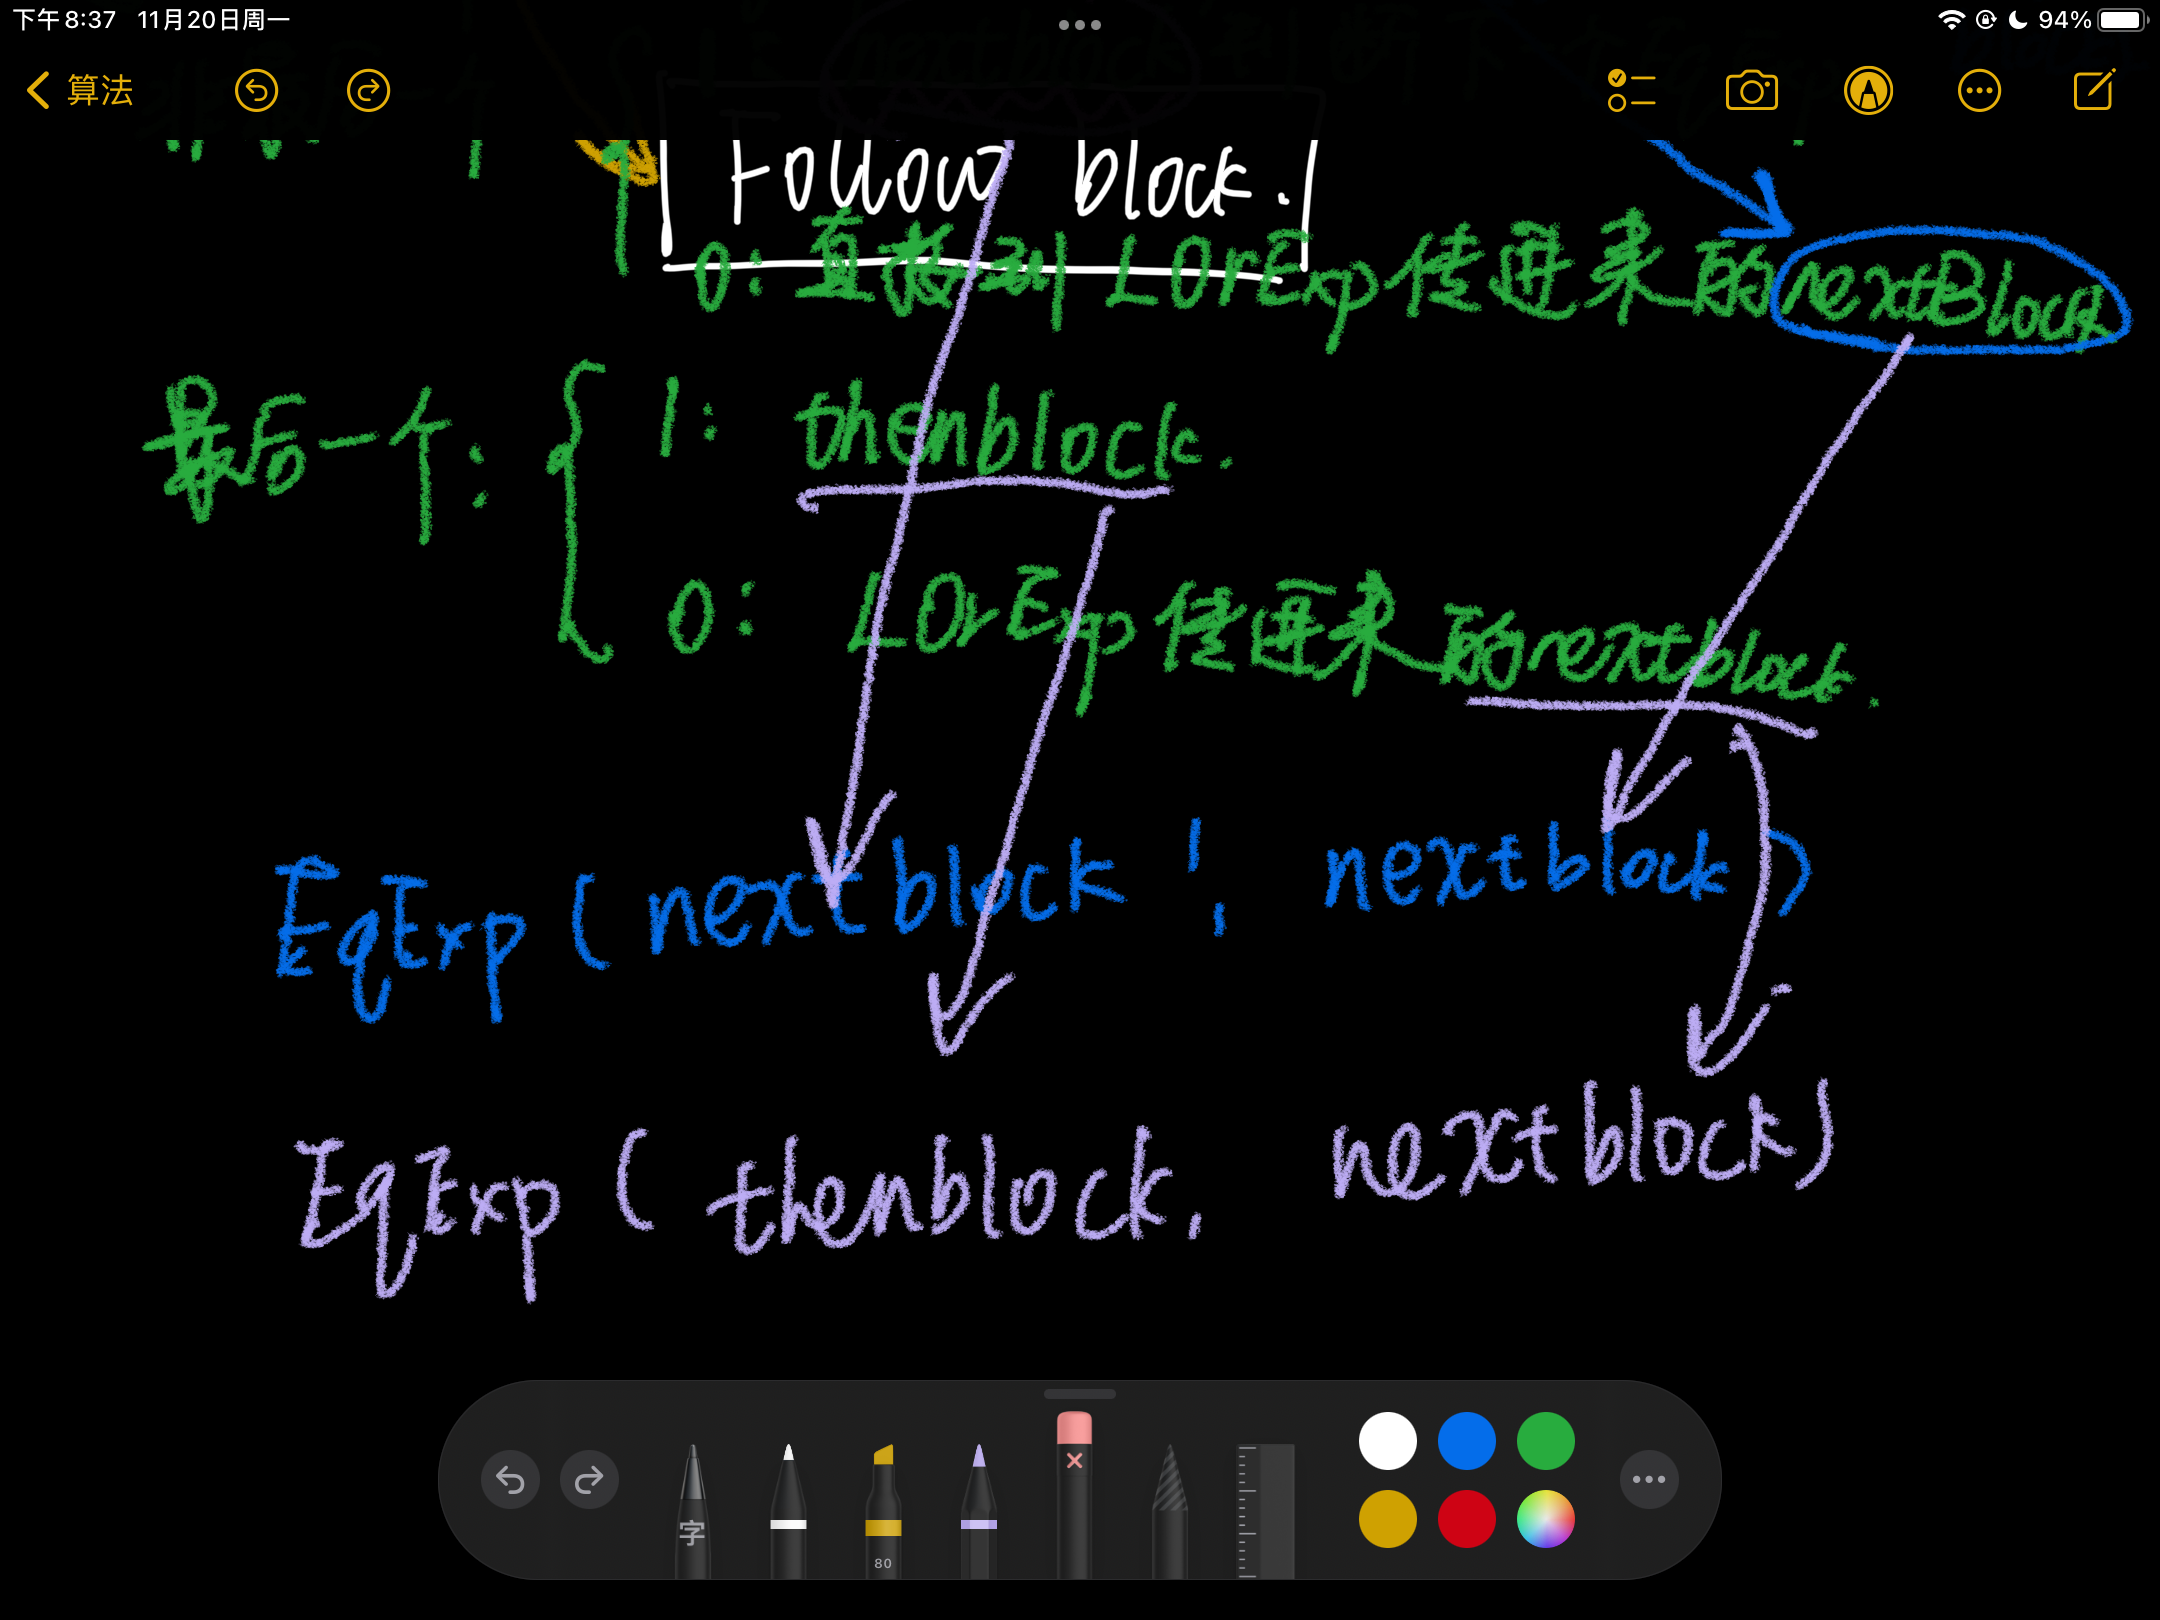 下午8:37 11月20日周一 94%
算法
Follow block.
0: 直接到 LOrExp传进来的nextBlock
最后一个: 1: thenblock.
0: LOrExp传进来的nextblock.
EqExp (nextblock', nextblock)
EqExp (thenblock, nextblock)
字
80